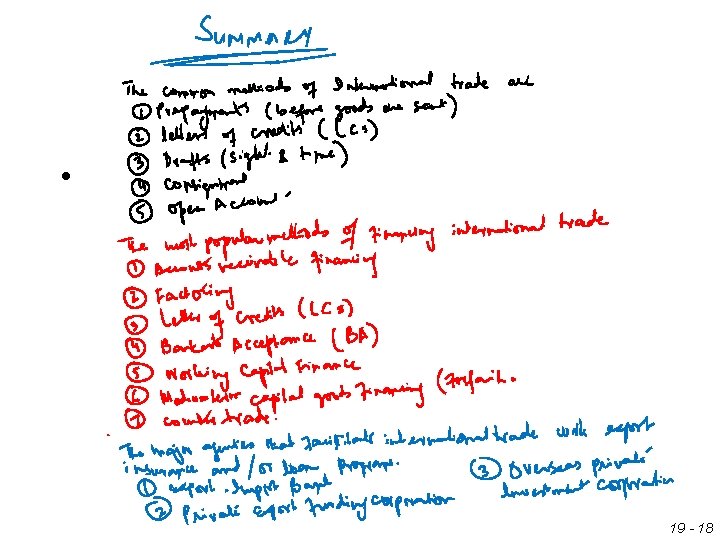 SUMMARY
The common methods of International trade are
① Prepayments (before goods are sent)
② letters of credits (LCs)
③ Drafts (sight & time)
④ Consignment
⑤ Open Account
The most popular methods of Financing international trade
① Accounts receivable Financing
② Factoring
③ Letter of Credits (LCs)
④ Bankers Acceptance (BA)
⑤ Working Capital Finance
⑥ capital goods Financing (Forfait.
⑦ Counter trade.
The major agencies that facilitate international trade with export
insurance and/or loan programs.
① export-Import Bank
② Private export funding corporation
③ Overseas private
Investment Corporation
19 - 18